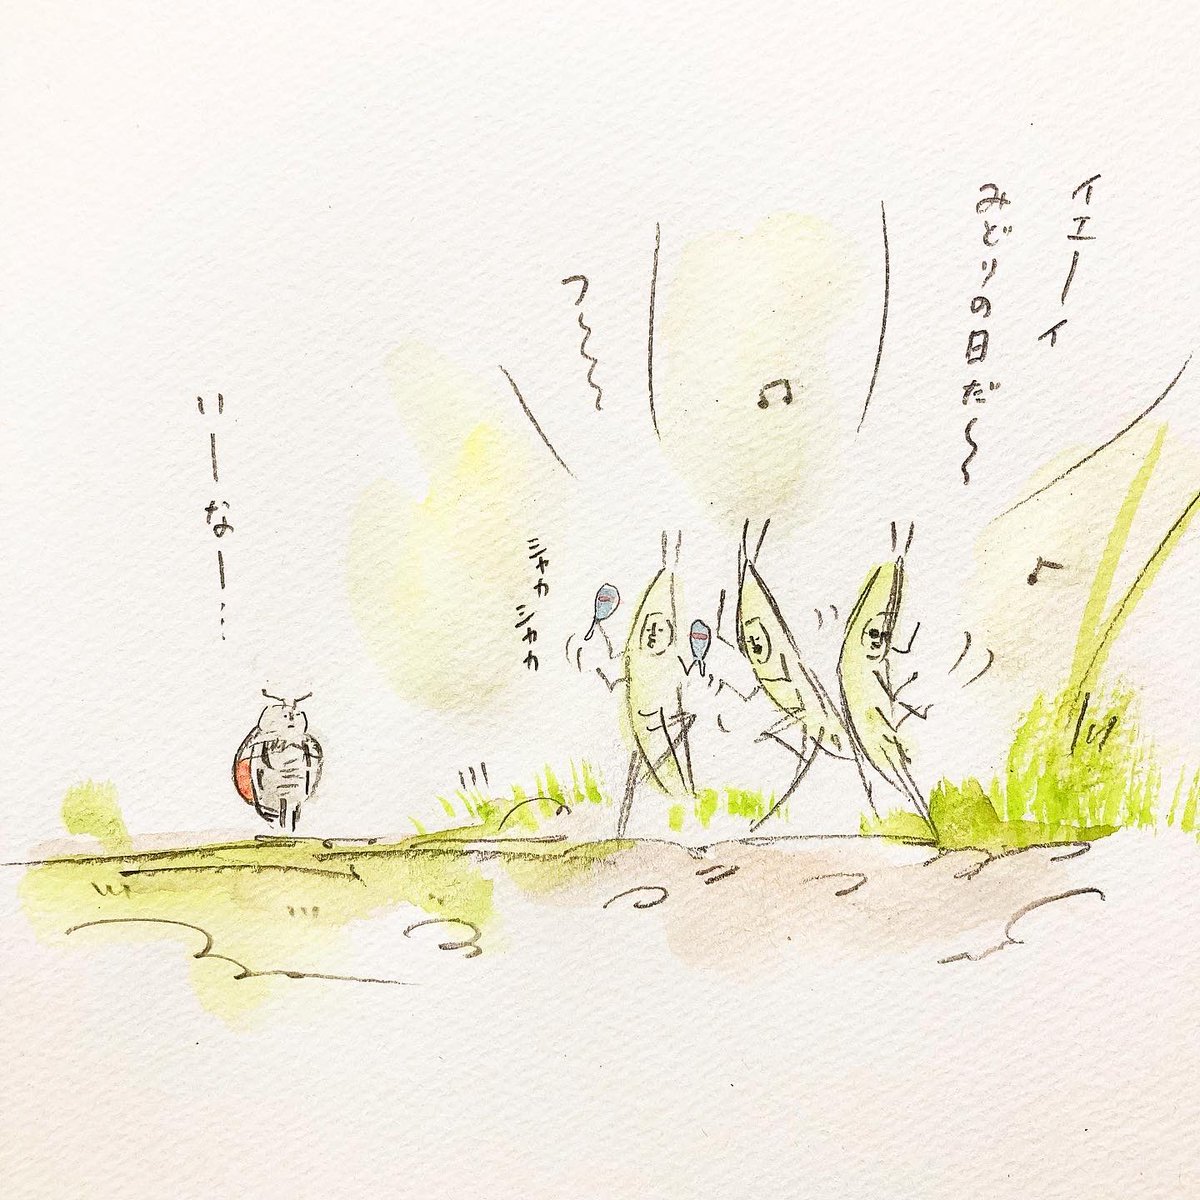 イエーイ
みどりの日だ〜〜
フ〜〜〜
シャカシャカ
いーなー…